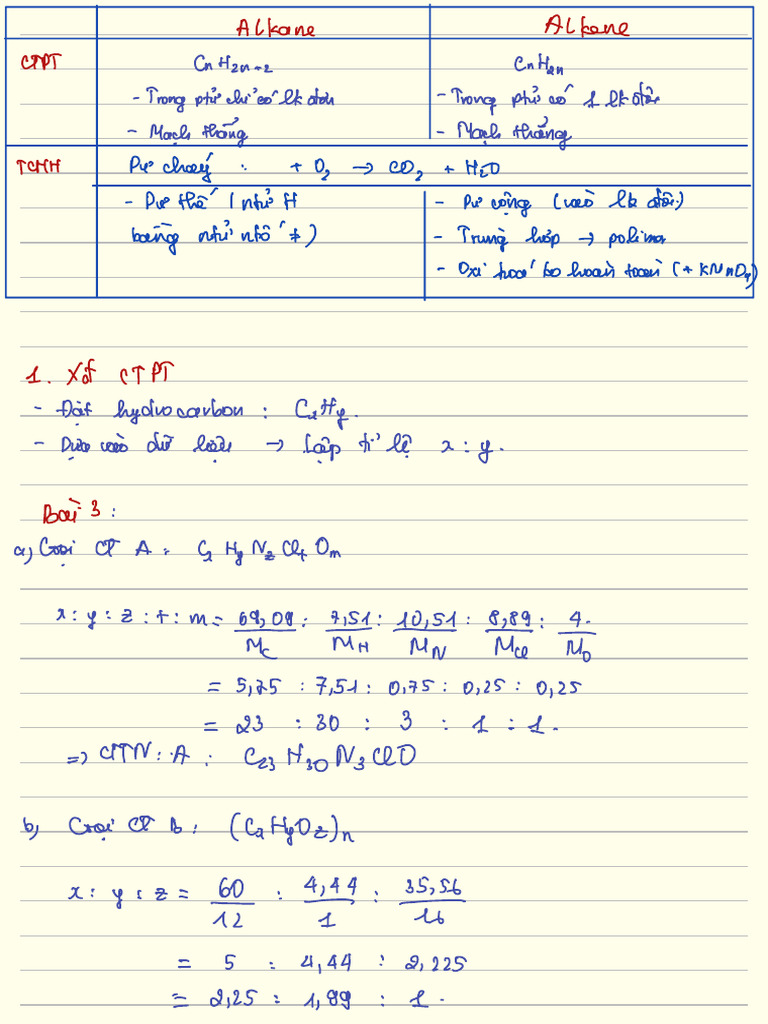 Alkane Alkene
CTPT CnH2n-2 CnH2n
- Trong ptử chỉ có lk đơn - Trong ptử có 1 lk đôi
- Mạch thẳng - Mạch thẳng
TCHH Pư cháy : + O2 → CO2 + H2O
- Pư thế (ntử H - Pư cộng (vào lk đôi)
bằng ntử ntố ≠) - Trùng hợp → polime
- Oxi hoá ko hoàn toàn (+ KMnO4)
1. Xđ CTPT
- Đặt hydrocarbon : CxHy.
- Dựa vào dữ kiện → Lập tỉ lệ x : y.
Bài 3 :
a, Gọi CT A : Cx Hy Nz Clt Om
x : y : z : t : m = 69,09/MC : 7,51/MH : 10,51/MN : 8,89/MCl : 4/MO
= 5,75 : 7,51 : 0,75 : 0,25 : 0,25
= 23 : 30 : 3 : 1 : 1.
=> CTN : A : C23 H30 N3 ClO
b, Gọi CT B : (CxHyOz)n
x : y : z = 60/12 : 4,44/1 : 35,56/16
= 5 : 4,44 : 2,225
= 2,25 : 1,99 : 1.